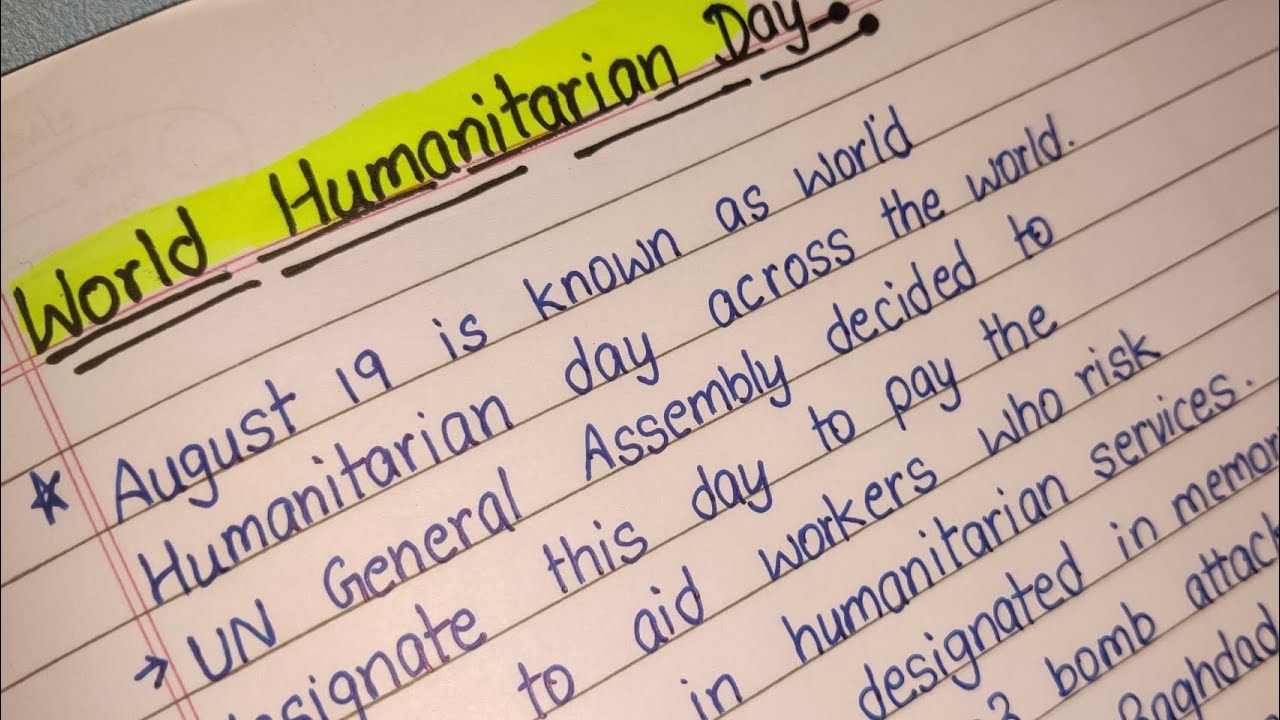 World Humanitarian Day
August 19 is known as world
Humanitarian day across the world.
→ UN General Assembly decided to
this day to pay the
to aid workers who risk
in humanitarian services.
designated in
bomb
Baghdad